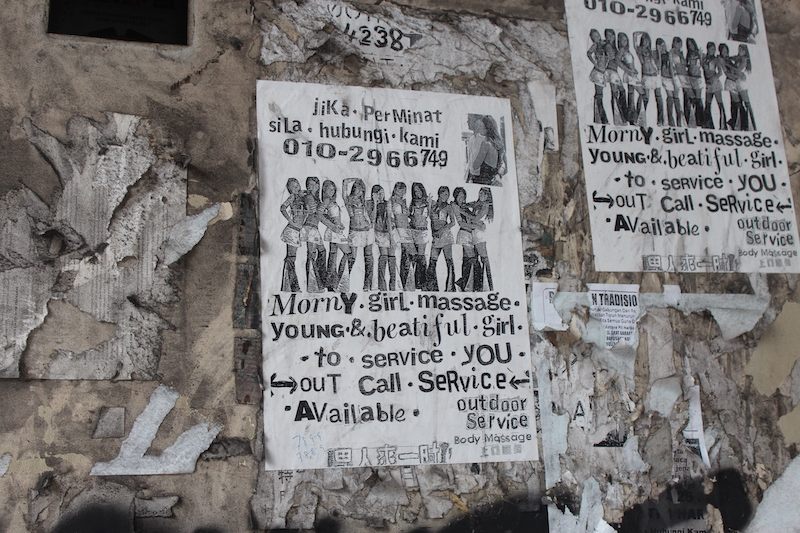 4238
jiKa · PerMinat
siLa · hubungi · kami
010-2966749
MornY · girL · massage ·
YOUNG · & · beatiful · girl ·
· to · service · YOU
ouT Call · SeRvice
· AVailable ·
outdoor
Service
Body Massage
hubungi · kami
010-2966749
MornY · girL · massage ·
YOUNG · & · beatiful · girl ·
· to · service · YOU
ouT Call · SeRvice
· AVailable ·
outdoor
Service
Body Massage
N TRADISIO